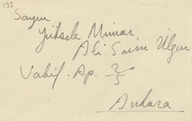 153
Sayın
Yüksek Mimar
Ali Saim Ülgen
Vakıf. Ap. 2/5
Ankara